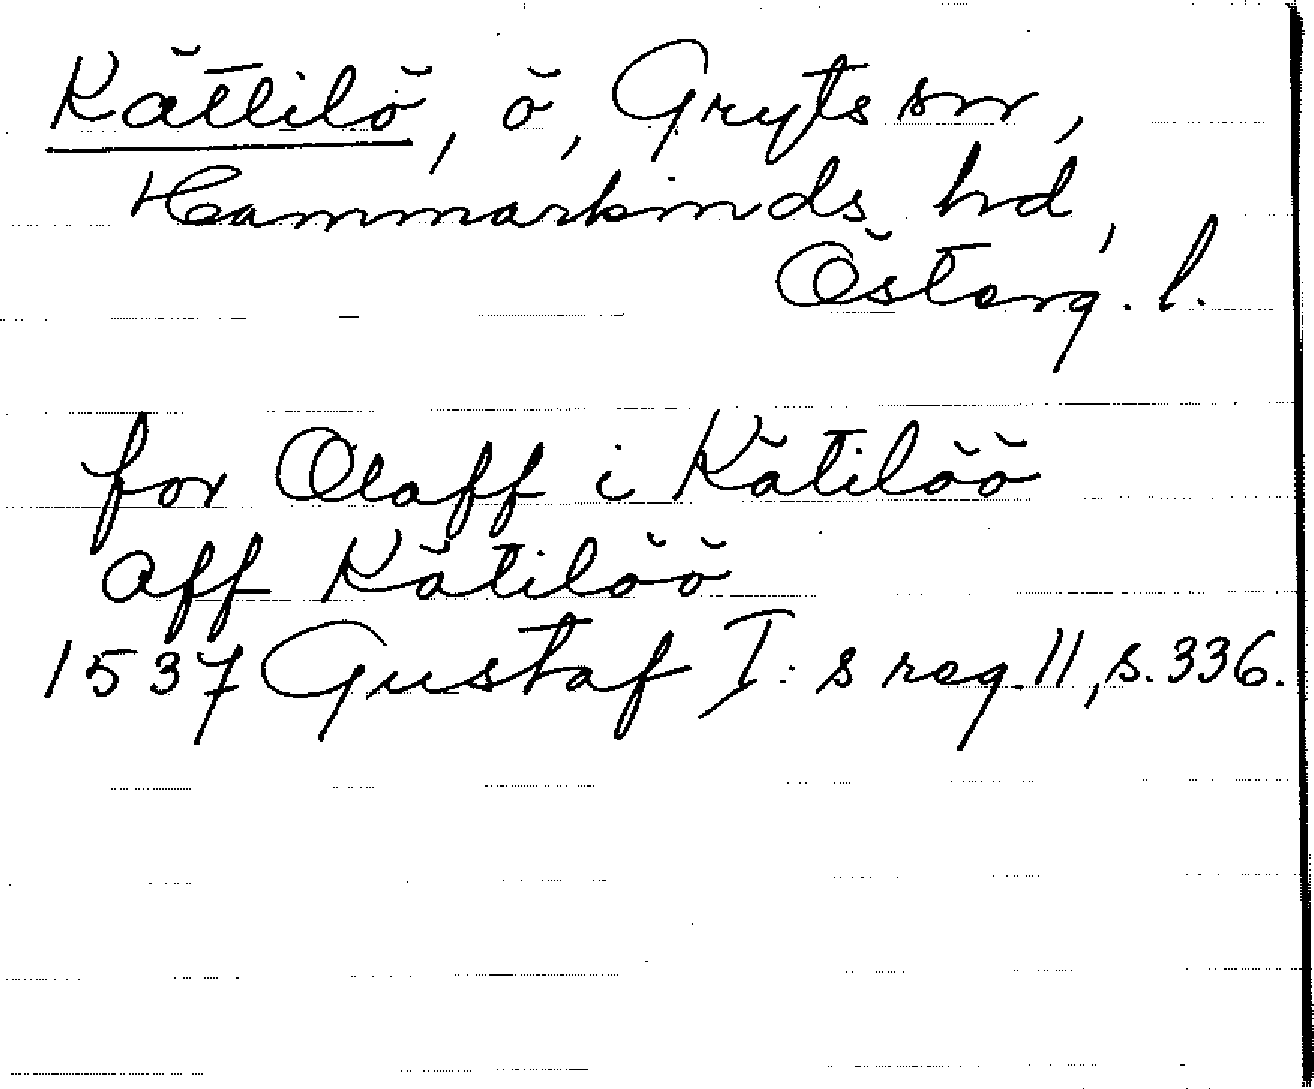 Kättilö, ö, Gryts sn,
Hammarkinds hd,
Österg. l.
for Olaff i Kätilöö
aff Kätilöö
1537 Gustaf I:s reg. 11, s. 336.